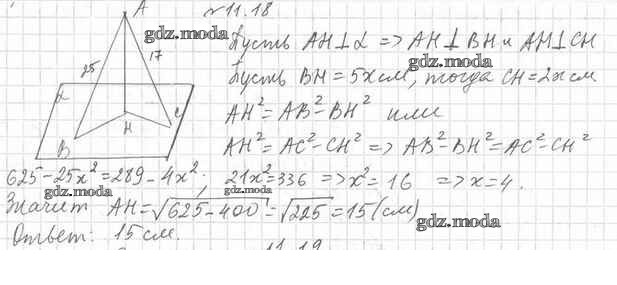 A
№ 11.18
gdz.moda
Пусть AH⊥α => AH⊥BH и AH⊥CH
25
17
gdz.moda
Пусть BH = 5x см, тогда CH = 2x см
α
AH² = AB² - BH² или
H
C
B
AH² = AC² - CH² => AB² - BH² = AC² - CH²
625 - 25x² = 289 - 4x²; 21x² = 336 => x² = 16 => x = 4.
gdz.moda
gdz.moda
Значит AH = √625 - 400 = √225 = 15 (см)
gdz.moda
Ответ: 15 см.
11.19